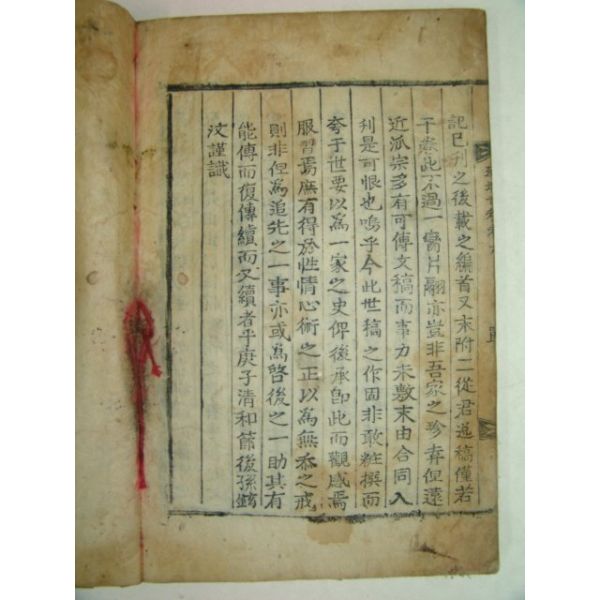 記已刊之後載之編首又末附二從君遺稿僅若
干葉此不過一臠片翮亦豈非吾家之珍弆但遠
近派宗多有可傳文稿而事力未敷末由合同入
刊是可恨也嗚乎今此世稿之作固非敢粧撰而
夸于世要以爲一家之史俾後承卽此而觀感焉
服習焉庶有得於性情心術之正以爲無忝之戒
則非但爲追先之一事亦或爲啓後之一助其有
能傳而復傳續而又續者乎庚子清和節後孫鉉
汶謹識